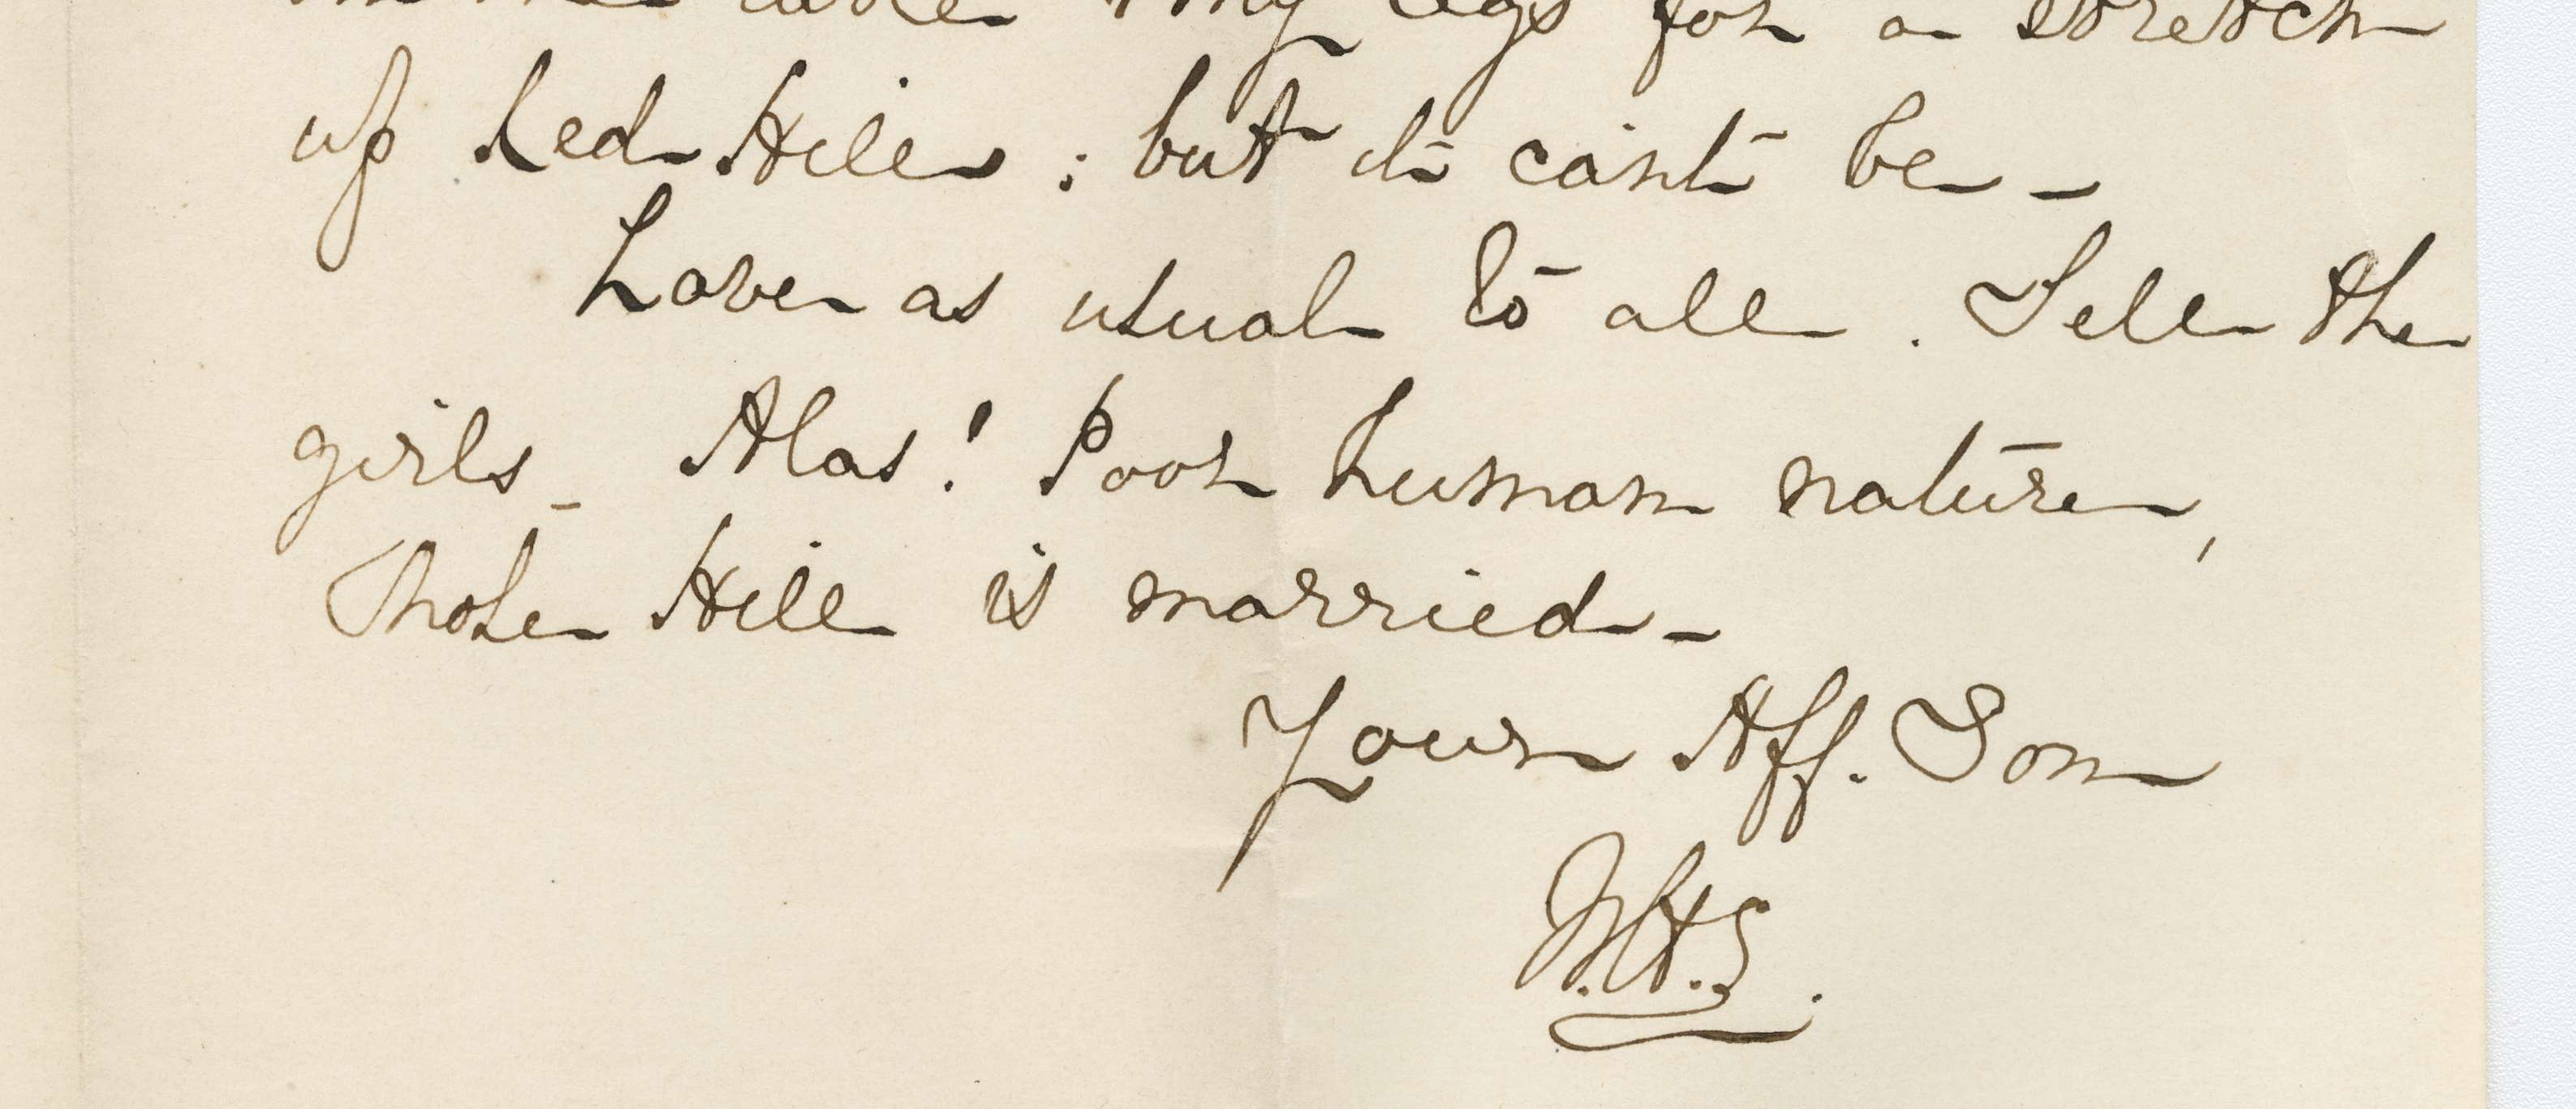 my legs for a stretch
up Red Hill : but it can't be -
Love as usual to all . Tell the
girls - Alas! Poor human nature,
Hill is married -
Your Aff. Son